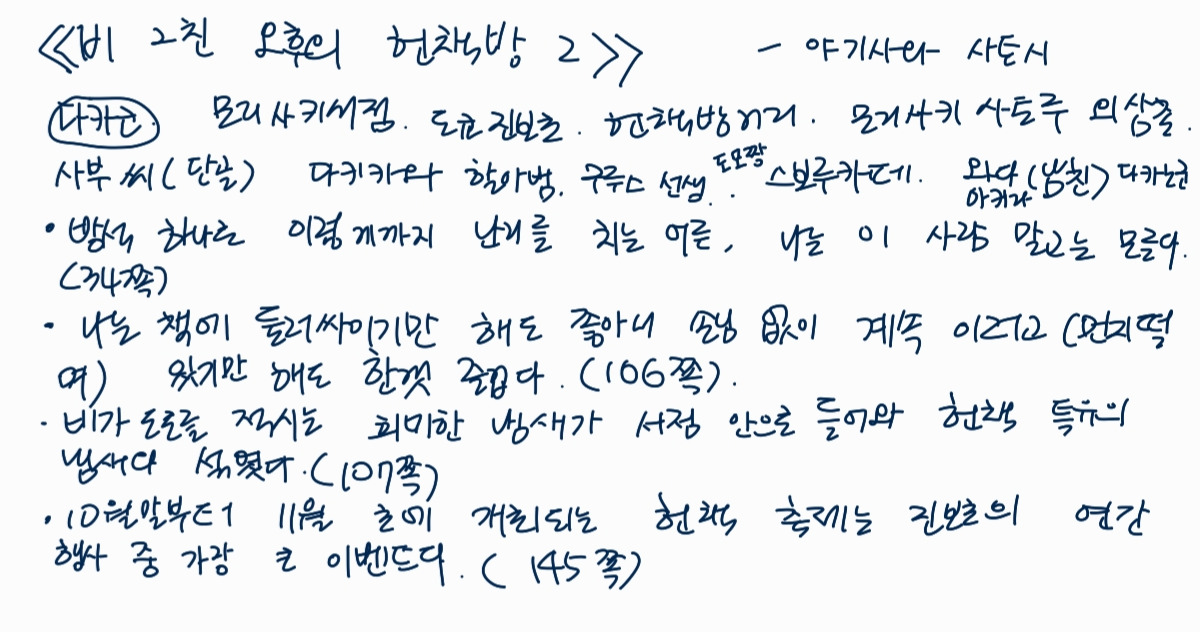 《비 그친 오후의 헌책방 2》 - 야기사와 사토시
다카코 모리사키서점. 도쿄진보초. 헌책방거리. 모리사키 사토루 외삼촌
사부 씨(단골) 다키카와 할아범. 구루스 선생. 도모짱. 스보루카페. 와다 아키라(남친) 다카노군
• 방석 하나로 이렇게까지 난리를 치는 어른, 나는 이 사람 말고는 모른다.
(34쪽)
• 나는 책에 둘러싸이기만 해도 좋아니 손님 없이 계속 이러고 (먼지떡
며) 있기만 해도 한껏 즐겁다. (106쪽).
• 비가 도로를 적시는 희미한 냄새가 서점 안으로 들어와 헌책 특유의
냄새다 섞였다. (107쪽)
• 10월말부터 11월 초에 개최되는 헌책 축제는 진보초의 연간
행사 중 가장 큰 이벤트다. (145쪽)